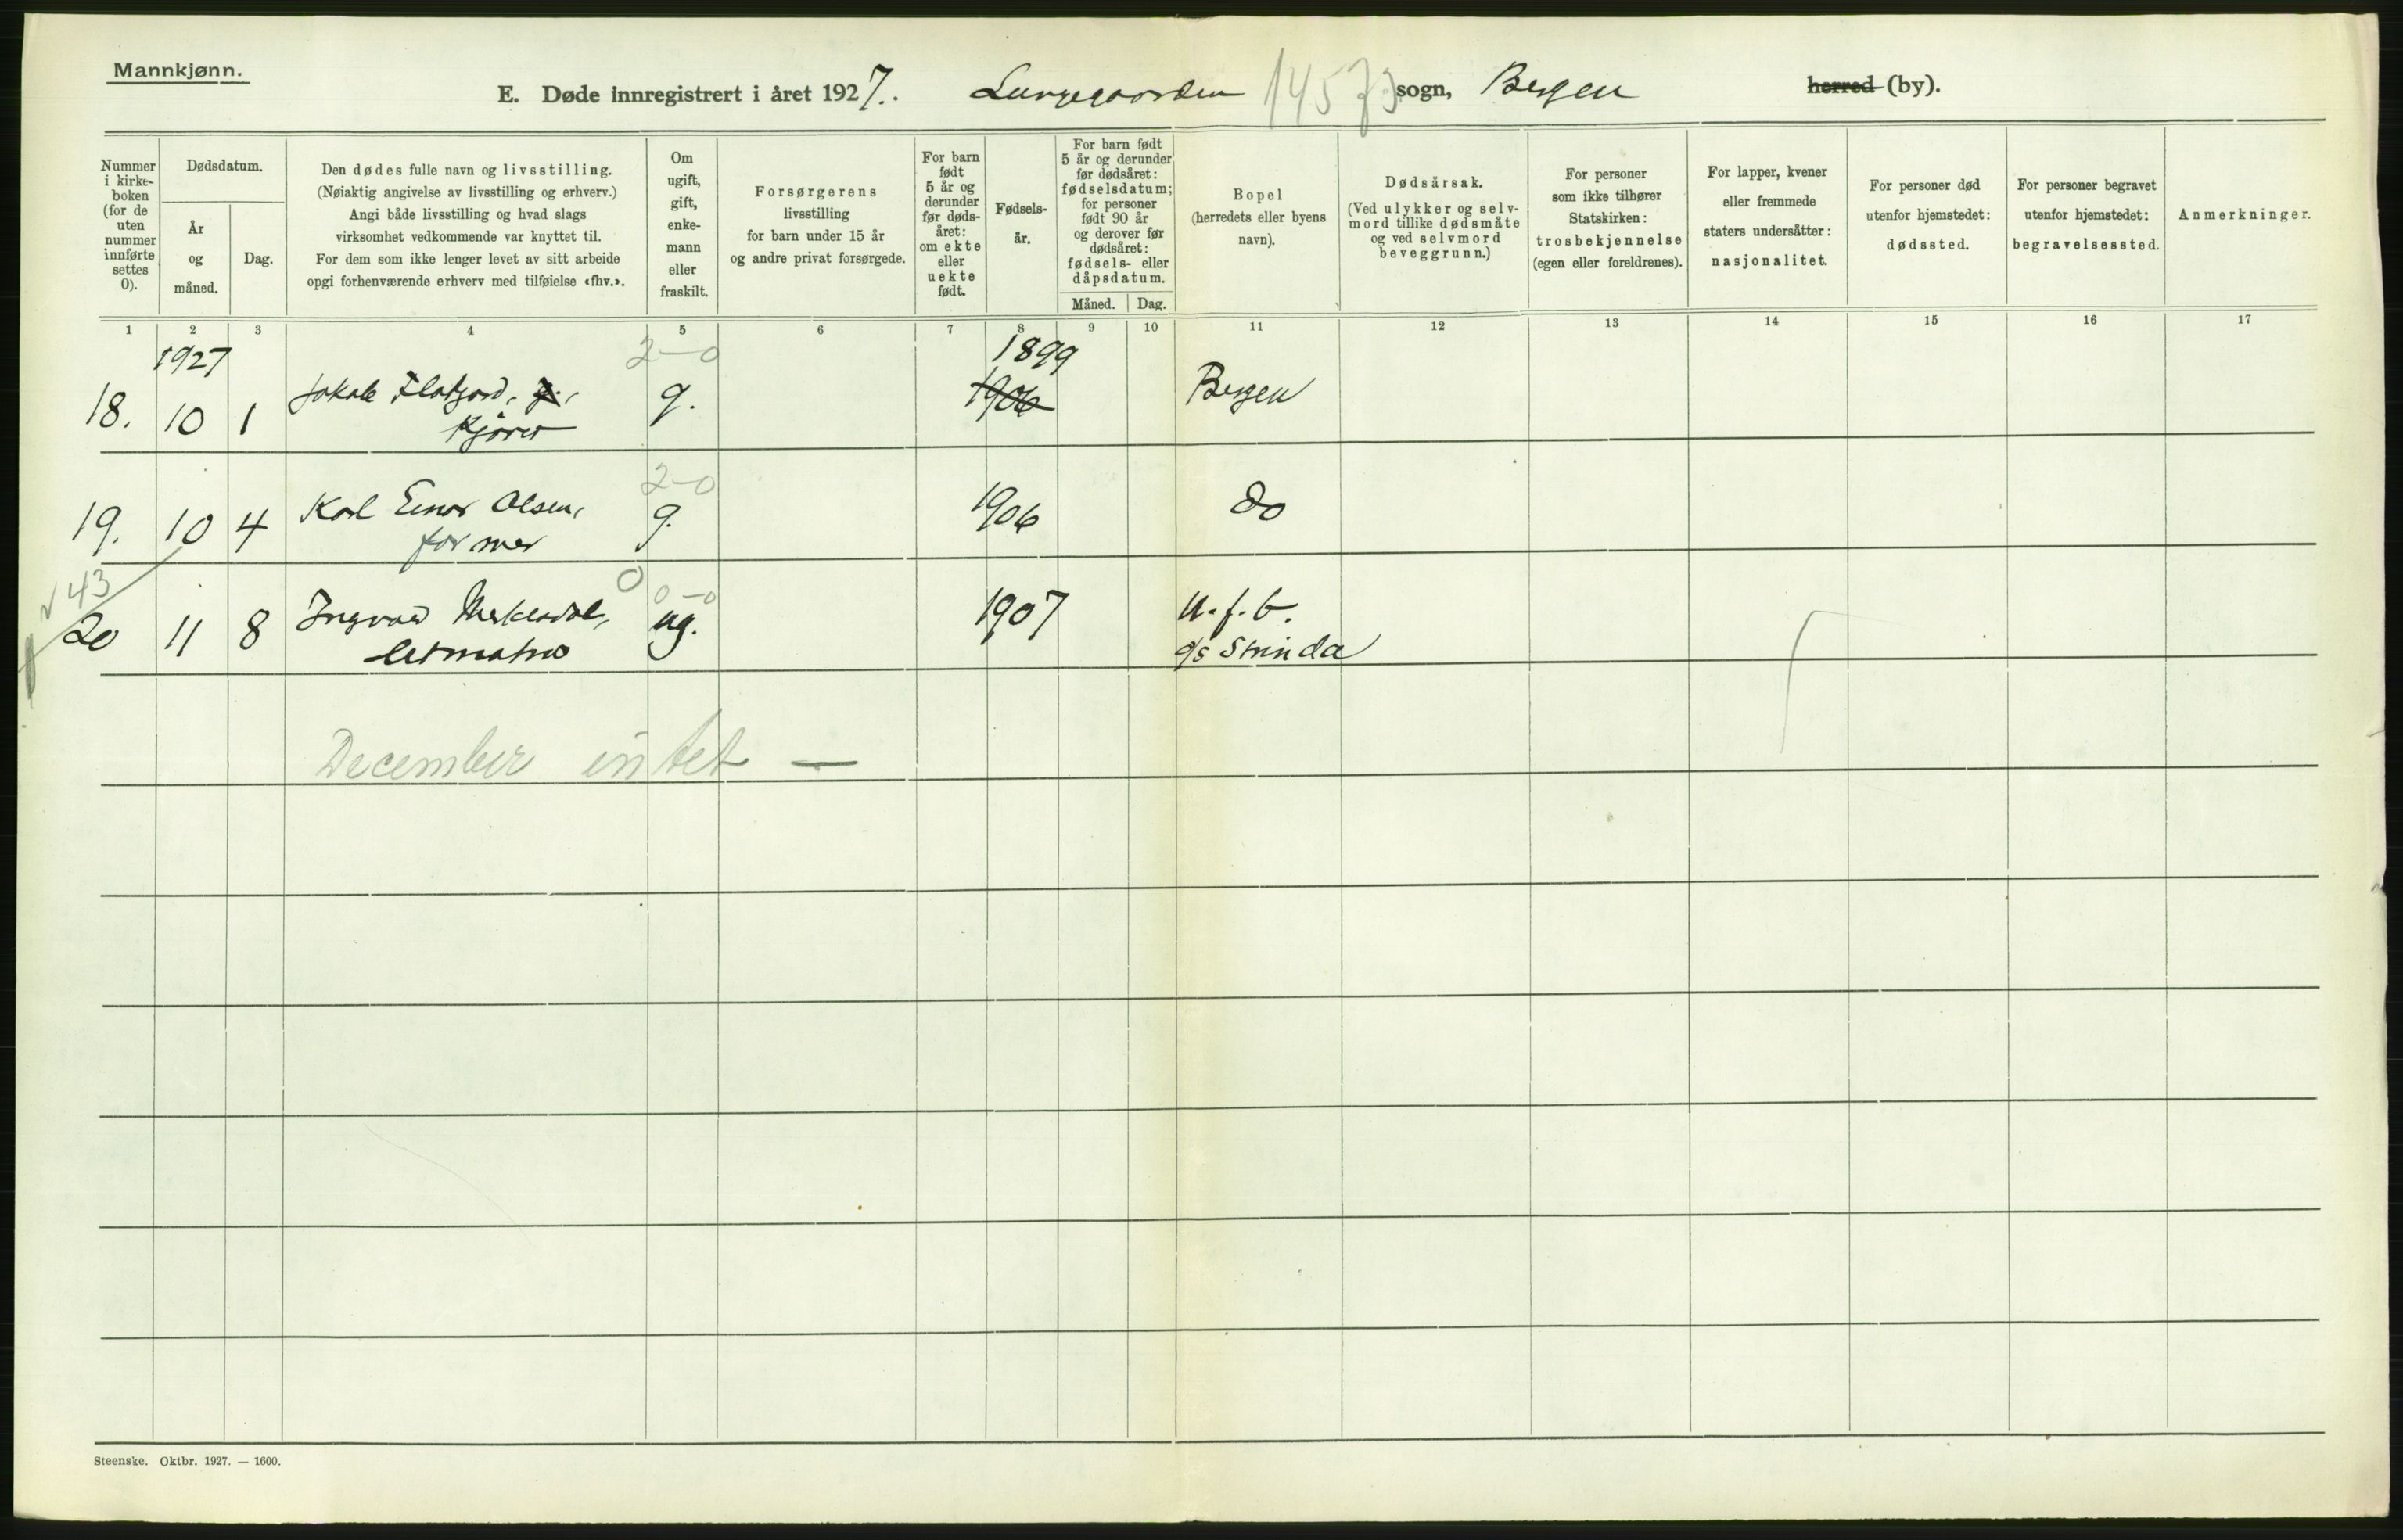 Mannkjønn.
E. Døde innregistrert i året 1927. Lungegaarden 14573 sogn, Bergen herred (by).
Nummer i kirke-boken (for de uten nummer innførte settes 0).
Dødsdatum.
År og måned.
Dag.
Den dødes fulle navn og livsstilling.
(Nøiaktig angivelse av livsstilling og erhverv.)
Angi både livsstilling og hvad slags
virksomhet vedkommende var knyttet til.
For dem som ikke lenger levet av sitt arbeide
opgi forhenværende erhverv med tilføielse «fhv.».
Om ugift, gift, enke-mann eller fraskilt.
Forsørgerens
livsstilling
for barn under 15 år
og andre privat forsørgede.
For barn født 5 år og derunder før døds-året: om ekte eller uekte født.
Fødsels-år.
For barn født
5 år og derunder
før dødsåret:
fødselsdatum;
for personer
født 90 år
og derover før
dødsåret:
fødsels- eller
dåpsdatum.
Måned. Dag.
Bopel
(herredets eller byens
navn).
Dødsårsak.
(Ved ulykker og selv-
mord tillike dødsmåte
og ved selvmord
beveggrunn.)
For personer
som ikke tilhører
Statskirken:
trosbekjennelse
(egen eller foreldrenes).
For lapper, kvener
eller fremmede
staters undersåtter:
nasjonalitet.
For personer død
utenfor hjemstedet:
dødssted.
For personer begravet
utenfor hjemstedet:
begravelsessted.
Anmerkninger.
1 2 3 4 5 6 7 8 9 10 11 12 13 14 15 16 17
1927 2-0 1899
18. 10 1 Jakob g. 1906 Bergen
Kjører
2-0
19. 10 4 Karl Einar Olsen, g. 1906 do
former
43 0 0-0
20 11 8 Ingvald ug. 1907 u.f.b.
letmatros d/s Strinda
December intet —
Steenske. Oktbr. 1927. — 1600.